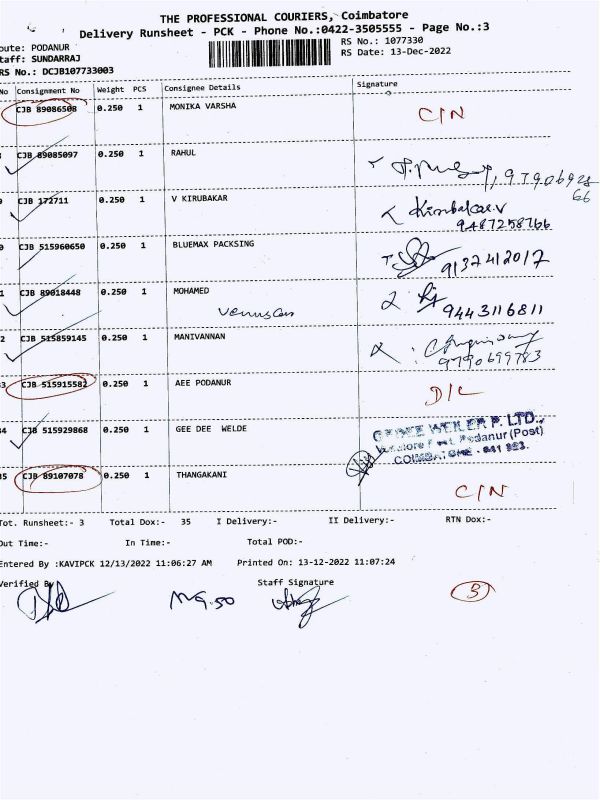 THE PROFESSIONAL COURIERS, Coimbatore
Delivery Runsheet - PCK - Phone No.:0422-3505555 - Page No.:3
oute: PODANUR RS No.: 1077330
taff: SUNDARRAJ RS Date: 13-Dec-2022
RS No.: DCJB107733003
No Consignment No Weight PCS Consignee Details Signature
CJB 89086508 0.250 1 MONIKA VARSHA C/N
CJB 89085097 0.250 1 RAHUL
CJB 172711 0.250 1 V KIRUBAKAR Kirubakar.V
9487258766
0 CJB 515960650 0.250 1 BLUEMAX PACKSING 9137412017
1 CJB 89018448 0.250 1 MOHAMED 9443116811
2 CJB 515859145 0.250 1 MANIVANNAN
9790699783
33 CJB 515915582 0.250 1 AEE PODANUR D/L
34 CJB 515929868 0.250 1 GEE DEE WELDE GEDEE WEILER P. LTD.,
Podanur (Post)
COIMBATORE - 641 023.
35 CJB 89107078 0.250 1 THANGAKANI C/N
Tot. Runsheet:- 3 Total Dox:- 35 I Delivery:- II Delivery:- RTN Dox:-
Out Time:- In Time:- Total POD:-
Entered By :KAVIPCK 12/13/2022 11:06:27 AM Printed On: 13-12-2022 11:07:24
Verified By Staff Signature
3